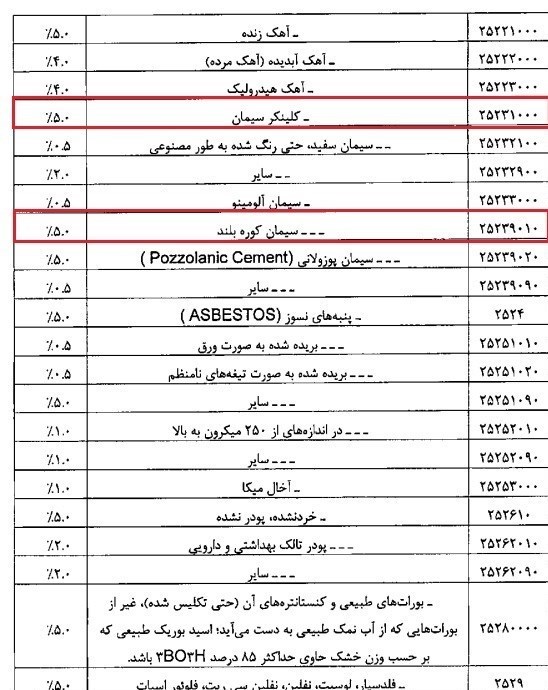 ۲۵۲۲۱۰۰۰ ـ آهک زنده ٪۵.۰
۲۵۲۲۲۰۰۰ ـ آهک آبدیده (آهک مرده) ٪۴.۰
۲۵۲۲۳۰۰۰ ـ آهک هیدرولیک ٪۴.۰
۲۵۲۳۱۰۰۰ ـ کلینکر سیمان ٪۵.۰
۲۵۲۳۲۱۰۰ ـ ـ سیمان سفید، حتی رنگ شده به طور مصنوعی ٪۰.۵
۲۵۲۳۲۹۰۰ ـ ـ سایر ٪۲.۰
۲۵۲۳۳۰۰۰ ـ سیمان آلومینو ٪۰.۵
۲۵۲۳۹۰۱۰ ـ ـ ـ سیمان کوره بلند ٪۵.۰
۲۵۲۳۹۰۲۰ ـ ـ ـ سیمان پوزولانی (Pozzolanic Cement ) ٪۵.۰
۲۵۲۳۹۰۹۰ ـ ـ ـ سایر ٪۰.۵
۲۵۲۴ ـ پنبه‌های نسوز (ASBESTOS ) ٪۵.۰
۲۵۲۵۱۰۱۰ ـ ـ ـ بریده شده به صورت ورق ٪۰.۵
۲۵۲۵۱۰۲۰ ـ ـ ـ بریده شده به صورت تیغه‌های نامنظم ٪۰.۵
۲۵۲۵۱۰۹۰ ـ ـ ـ سایر ٪۵.۰
۲۵۲۵۲۰۱۰ ـ ـ ـ در اندازه‌های از ۲۵۰ میکرون به بالا ٪۱.۰
۲۵۲۵۲۰۹۰ ـ ـ ـ سایر ٪۱.۰
۲۵۲۵۳۰۰۰ ـ آخال میکا ٪۱.۰
۲۵۲۶۱۰ ـ خردنشده، پودر نشده ٪۵.۰
۲۵۲۶۲۰۱۰ ـ ـ ـ پودر تالک بهداشتی و دارویی ٪۲.۰
۲۵۲۶۲۰۹۰ ـ ـ ـ سایر ٪۲.۰
ـ بورات‌های طبیعی و کنستانتره‌های آن (حتی تکلیس شده)، غیر از
۲۵۲۸۰۰۰۰ بورات‌هایی که از آب نمک طبیعی به دست می‌آید؛ اسید بوریک طبیعی که ٪۵.۰
بر حسب وزن خشک حاوی حداکثر ۸۵ درصد ۳BO۳H باشد.
۲۵۲۹ ـ فلدسپار، لوسیت، نفلین، نفلین سی ریت، فلوئور اسپات ٪۵.۰